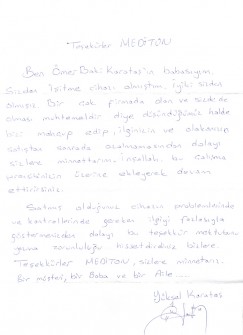 Teşekkürler MEDİTON
Ben Ömer Baki Karataş'ın babasıyım.
Sizden işitme cihazı almıştım, iyiki sizden
almışım. Bir çok firmada olan ve sizde de
olması muhtemeldir diye düşündüğümüz halde
bizi mahcup edip, ilginizin ve alakanızın
satıştan sonrada azalmamasından dolayı
sizlere minnettarım, inşallah bu çalışma
üzerine ekleyerek devam
ettirirsiniz.
Satmış olduğunuz cihazın problemlerinde
ve kontrollerinde gereken ilgiyi fazlasıyla
göstermenizden dolayı bu teşekkür mektubunu
yazma zorunluluğu hissettirdiniz bizlere.
Teşekkürler MEDİTON, sizlere minnettarız.
Bir müşteri, bir Baba ve bir Aile .....
Yüksel Karataş